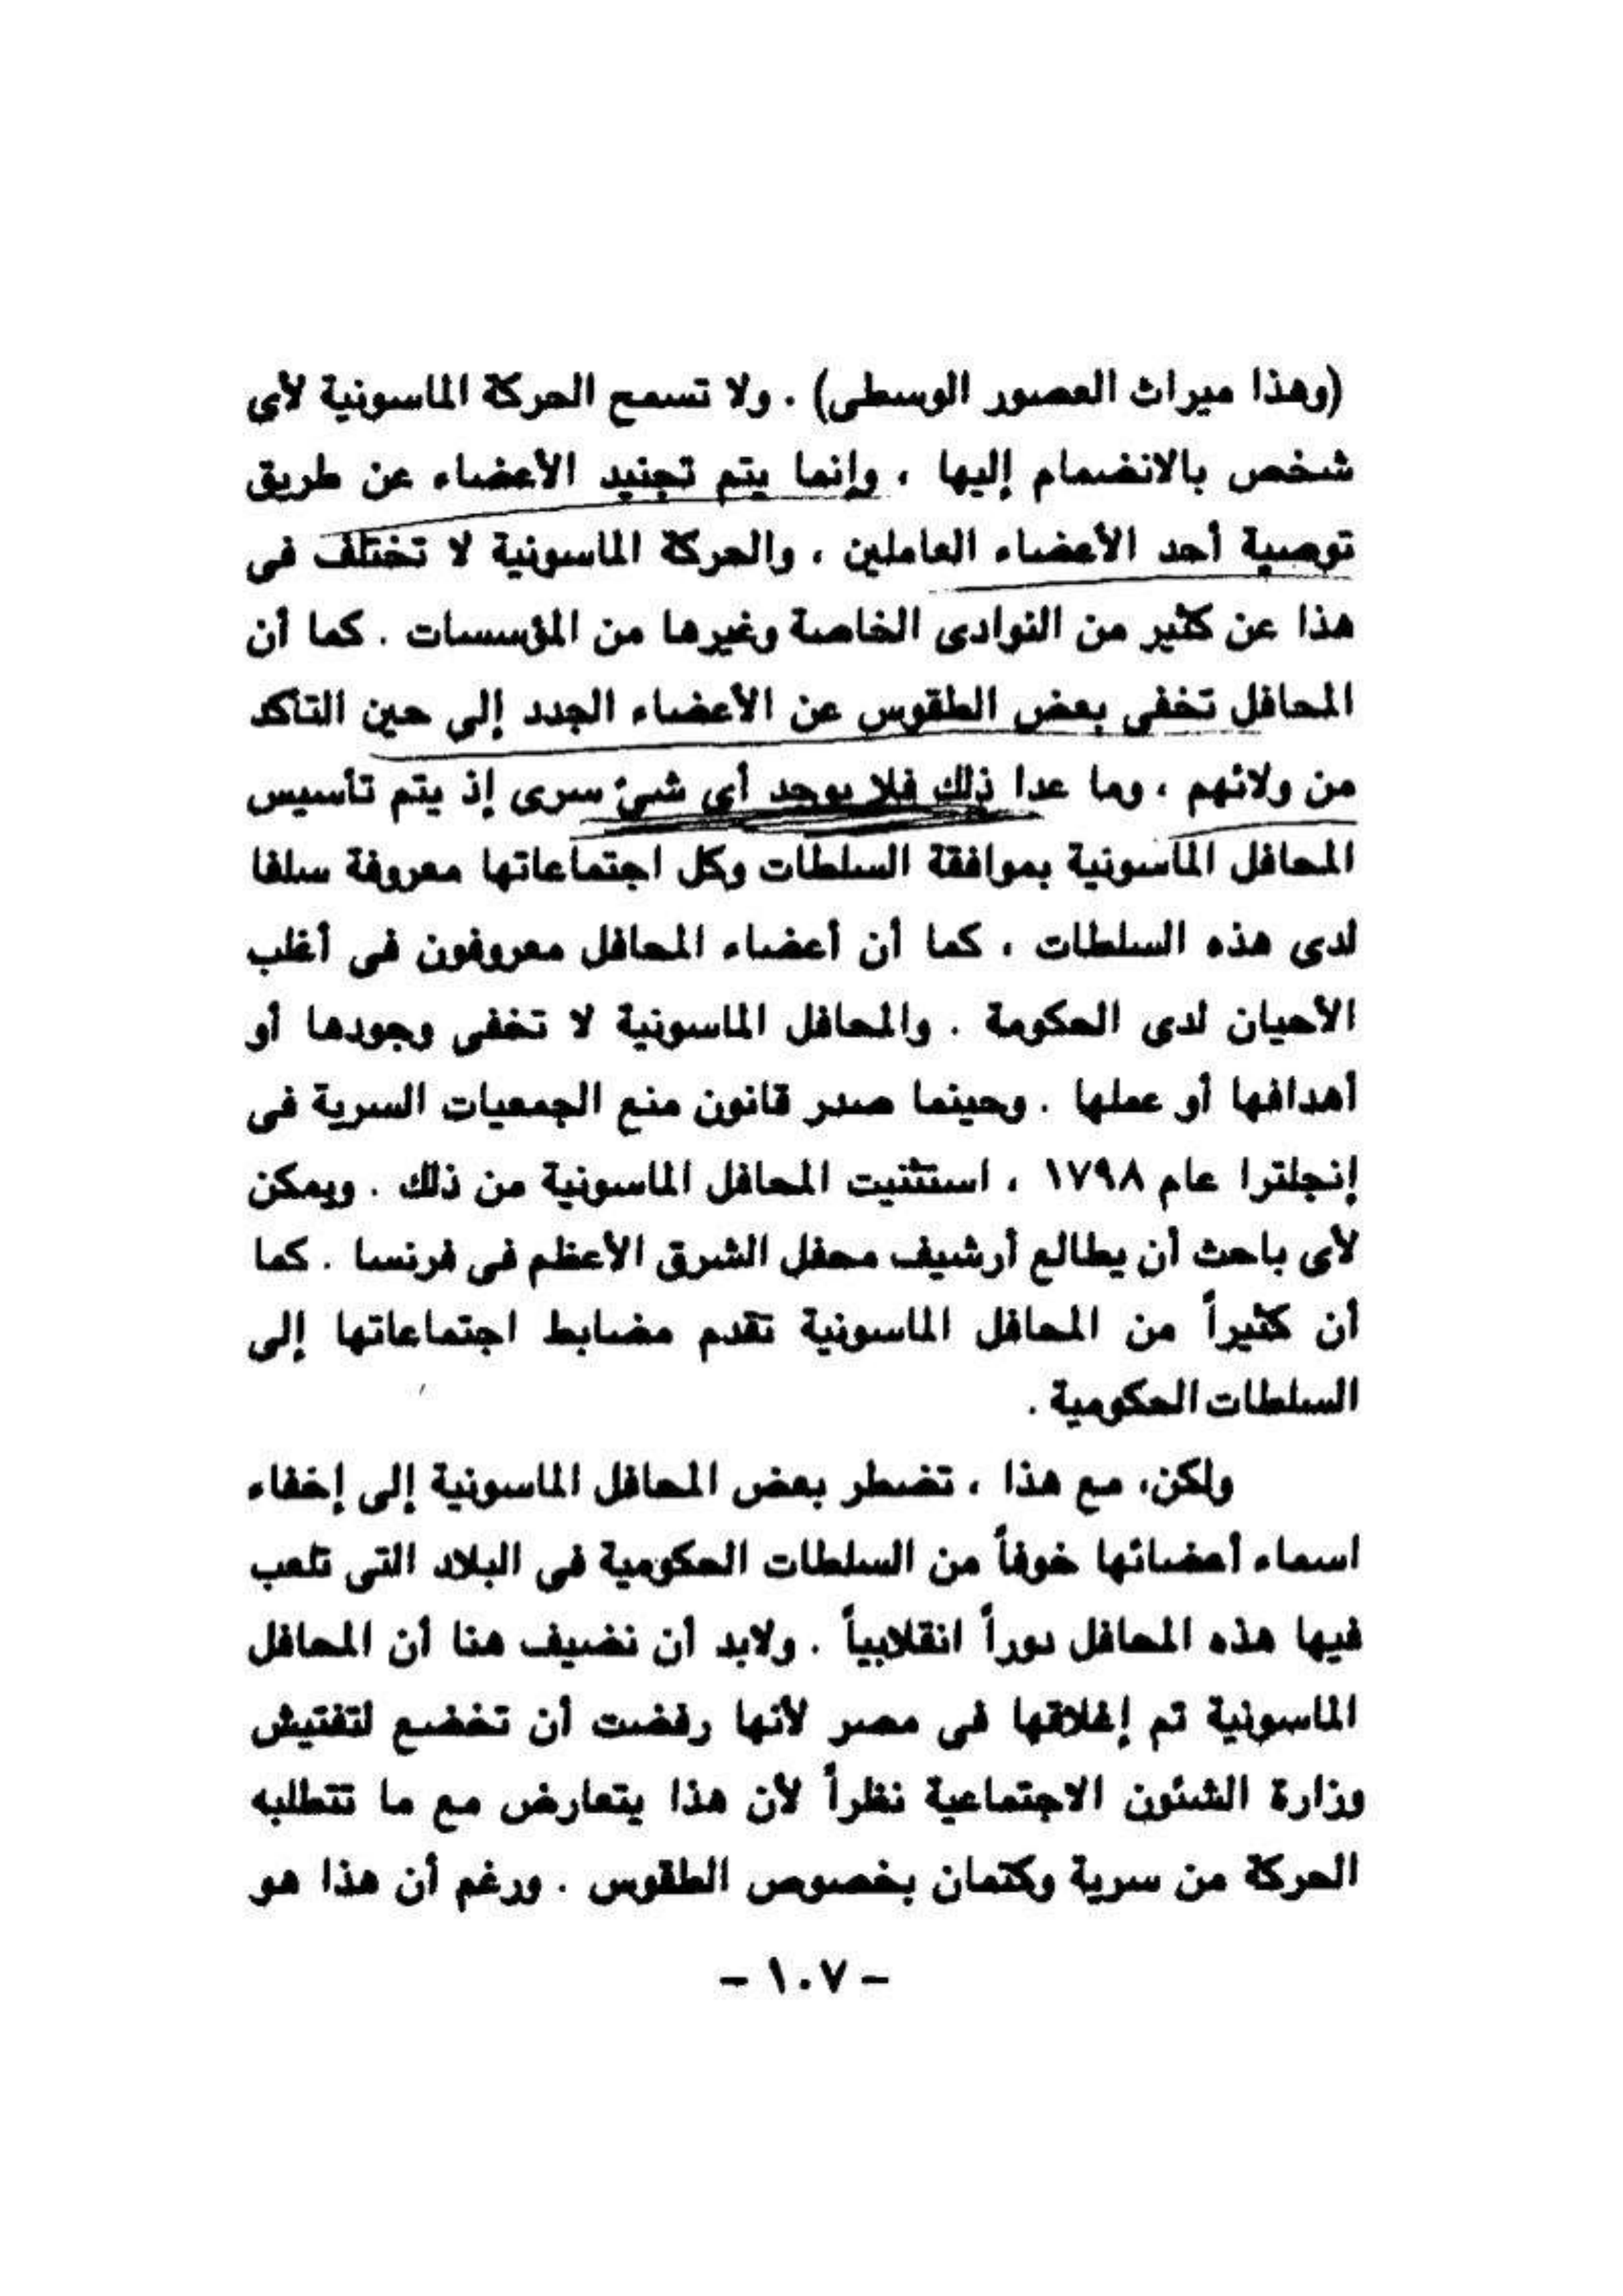 (وهذا ميراث العصور الوسطى) . ولا تسمح الحركة الماسونية لأى
شخص بالانضمام إليها ، وإنما يتم تجنيد الأعضاء عن طريق
توصية أحد الأعضاء العاملين ، والحركة الماسونية لا تختلف فى
هذا عن كثير من النوادى الخاصة وغيرها من المؤسسات . كما أن
المحافل تخفى بعض الطقوس عن الأعضاء الجدد إلى حين التأكد
من ولائهم ، وما عدا ذلك فلا يوجد أى شئ سرى إذ يتم تأسيس
المحافل الماسونية بموافقة السلطات وكل اجتماعاتها معروفة سلفا
لدى هذه السلطات ، كما أن أعضاء المحافل معروفون فى أغلب
الأحيان لدى الحكومة . والمحافل الماسونية لا تخفى وجودها أو
أهدافها أو عملها . وحينما صدر قانون منع الجمعيات السرية فى
إنجلترا عام ١٧٩٨ ، استثنيت المحافل الماسونية من ذلك . ويمكن
لأى باحث أن يطالع أرشيف محفل الشرق الأعظم فى فرنسا . كما
أن كثيراً من المحافل الماسونية تقدم مضابط اجتماعاتها إلى
السلطات الحكومية .
ولكن، مع هذا ، تضطر بعض المحافل الماسونية إلى إخفاء
اسماء أعضائها خوفاً من السلطات الحكومية فى البلاد التى تلعب
فيها هذه المحافل دوراً انقلابياً . ولابد أن نضيف هنا أن المحافل
الماسونية تم إغلاقها فى مصر لأنها رفضت أن تخضع لتفتيش
وزارة الشئون الاجتماعية نظراً لأن هذا يتعارض مع ما تتطلبه
الحركة من سرية وكتمان بخصوص الطقوس . ورغم أن هذا هو
– ١٠٧ –